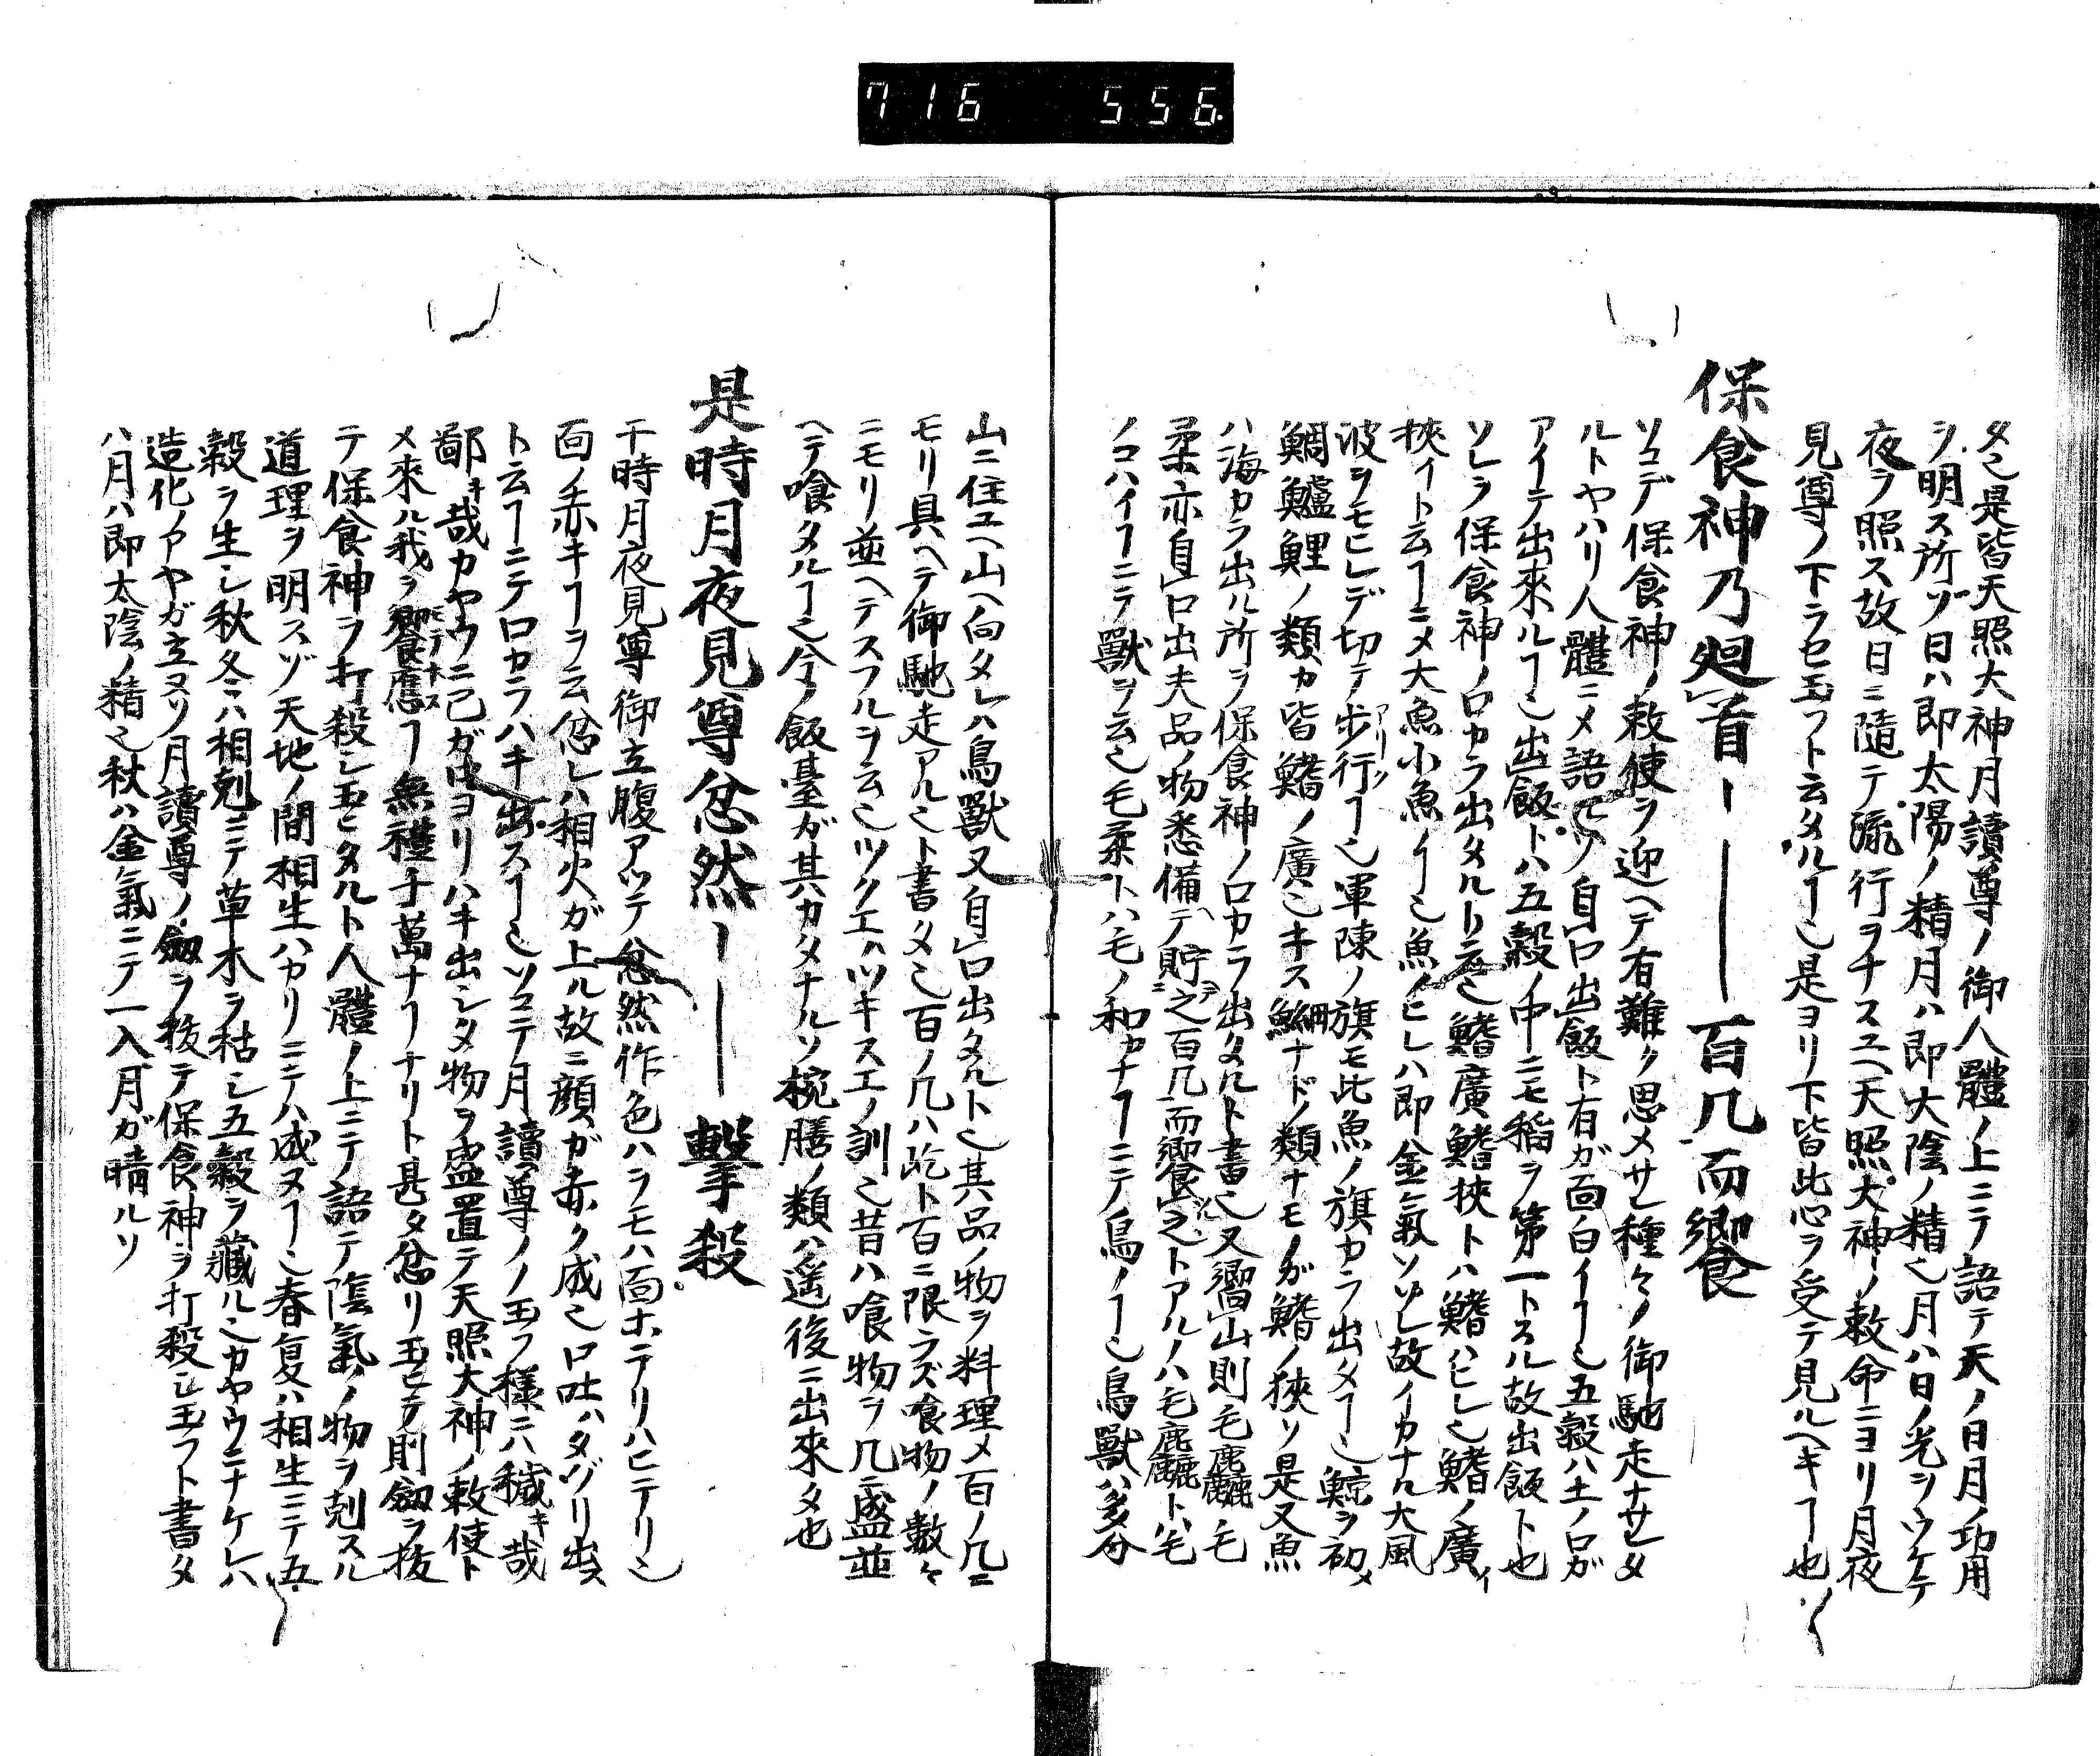 716 556
タ也是皆天照大神月讀尊ノ御人體ノ上ニテ語テ天ノ日月ノ功用
ヲ明ス所ソ日ハ即太陽ノ精月ハ即大陰ノ精也月ハ日ノ光ヲウケテ
夜ヲ照ス故日ニ隨テ流行ヲナスユヘ天照大神ノ敕命ニヨリ月夜
見尊ノ下ラセ玉フト云タルヿ也是ヨリ下皆此心ヲ受テ見ルヘキヿ也
保食神乃廻首ー｜百几而饗
ソコデ保食神ノ敕使ヲ迎ヘテ有難ク思メサレ種々ノ御馳走ナサレタ
ルトヤハリ人體ニメ語リ自口出飯ト有ガ面白イヿ也五穀ハ土ノ口ガ
アイテ出來ルヿ也出飯トハ五穀ノ中ニモ稲ヲ第一トスル故出飯ト也
ソレヲ保食神ノ口カラ出タルト云也鰭廣鰭狹トハ鰭ハヒレ也鰭ノ廣イ
狹イト云ヿニメ大魚小魚ノヿ也魚ノヒレハ即金氣ソソレ故イカナル大風
波ヲモヒレデ切テ歩行ヿ也軍陳ノ旗モ此魚ノ旗カラ出タヿ也鯨ヲ初メ
鯛鱸鯉ノ類カ皆鰭ノ廣也キス鯛ナドノ類ナモノガ鰭ノ狹ソ是又魚
ハ海カラ出ル所ヲ保食神ノ口カラ出タルト書也又嚮山則毛麁毛
柔亦自口出夫品ノ物悉備テ貯之百几而饗之トアルハ毛麁トハ毛
ノコハイヿニテ獸ヲ云也毛柔トハ毛ノ和カナヿニテ鳥ノヿ也鳥獸ハ多分
山ニ住ユヘ山ヘ向タレハ鳥獸又自口出タルト也其品ノ物ヲ料理メ百ノ几ニ
モリ具ヘテ御馳走アル也ト書タ也百ノ几ハ訖ト百ニ限ラズ喰物ノ數々
ニモリ並ヘテスフルヲ云也ツクエハツキスエノ訓也昔ハ喰物ヲ几ニ盛並
ヘテ喰タルヿ也今ノ飯臺ガ其カタナルソ椀膳ノ類ハ遥後ニ出來タ也
是時月夜見尊忿然ー｜撃殺
干時月夜見尊御立腹アツテ忿然作色ハラモハ面ホテリハヒテリ也
面ノ赤キヿヲ云忿レハ相火ガ上ル故ニ顔ガ赤ク成也口吐ハタグリ出ス
ト云ヿニテ口カラハキ出スヿ也ソコテ月讀尊ノノ玉フ様ニハ穢キ哉
鄙キ哉カヤウニ己ガ口ヨリハキ出シタ物ヲ盛置テ天照大神ノ敕使ト
メ來ル我ヲ饗應ヿ無禮千萬ナヿナリト甚タ忿リ玉ヒテ則劔ヲ抜
テ保食神ヲ打殺シ玉ヒタルト人體ノ上ニテノ語テ陰氣ノ物ヲ剋スル
道理ヲ明スゾ天地ノ間相生ハカリニテハ成ヌヿ也春夏ハ相生ニテ五
穀ヲ生シ秋冬ハ相剋ニテ草木ヲ枯シ五穀ヲ藏ル也カヤウニナケレハ
造化ノアヤガ立ヌソ月讀尊ノ劔ヲ抜テ保食神ヲ打殺シ玉フト書タ
八月ハ即太陰ノ精也秋ハ金氣ニテ一入月ガ晴ルソ